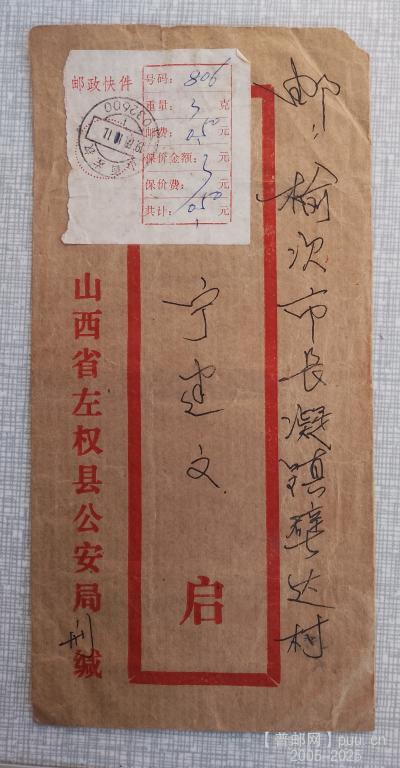 邮政快件
号码：806
重量：3克
邮费：0.50元
保价金额：3元
保价费：元
共计：0.50元
032600
邮：榆次市长凝镇壁达村
宁建文
启
山西省左权县公安局刑缄
【普邮网】puu.cn
2005-2025